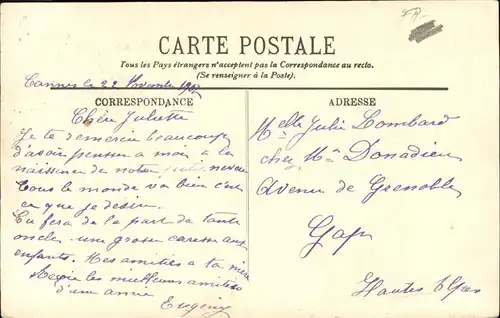 FR
CARTE POSTALE
Tous les Pays étrangers n'acceptent pas la Correspondance au recto.
(Se renseigner à la Poste).
Cannes le 22 Novembre
CORRESPONDANCE
Chère Juliette
Je te remercie beaucoup
d'avoir penser a moi a la
naissence de notre petit neveu
Tous le monde va bien c'est
ce que je désire.
Tu fera de la part de tante
oncle une grosse caresse aux
enfants. Mes amitiés a ta mère
Reçoie les meilleures amitiés
d'une amie
Eugény
ADRESSE
Melle Julie Lombard
chez Mr Donadieu
Avenue de Grenoble
Gap
Hautes Alpes